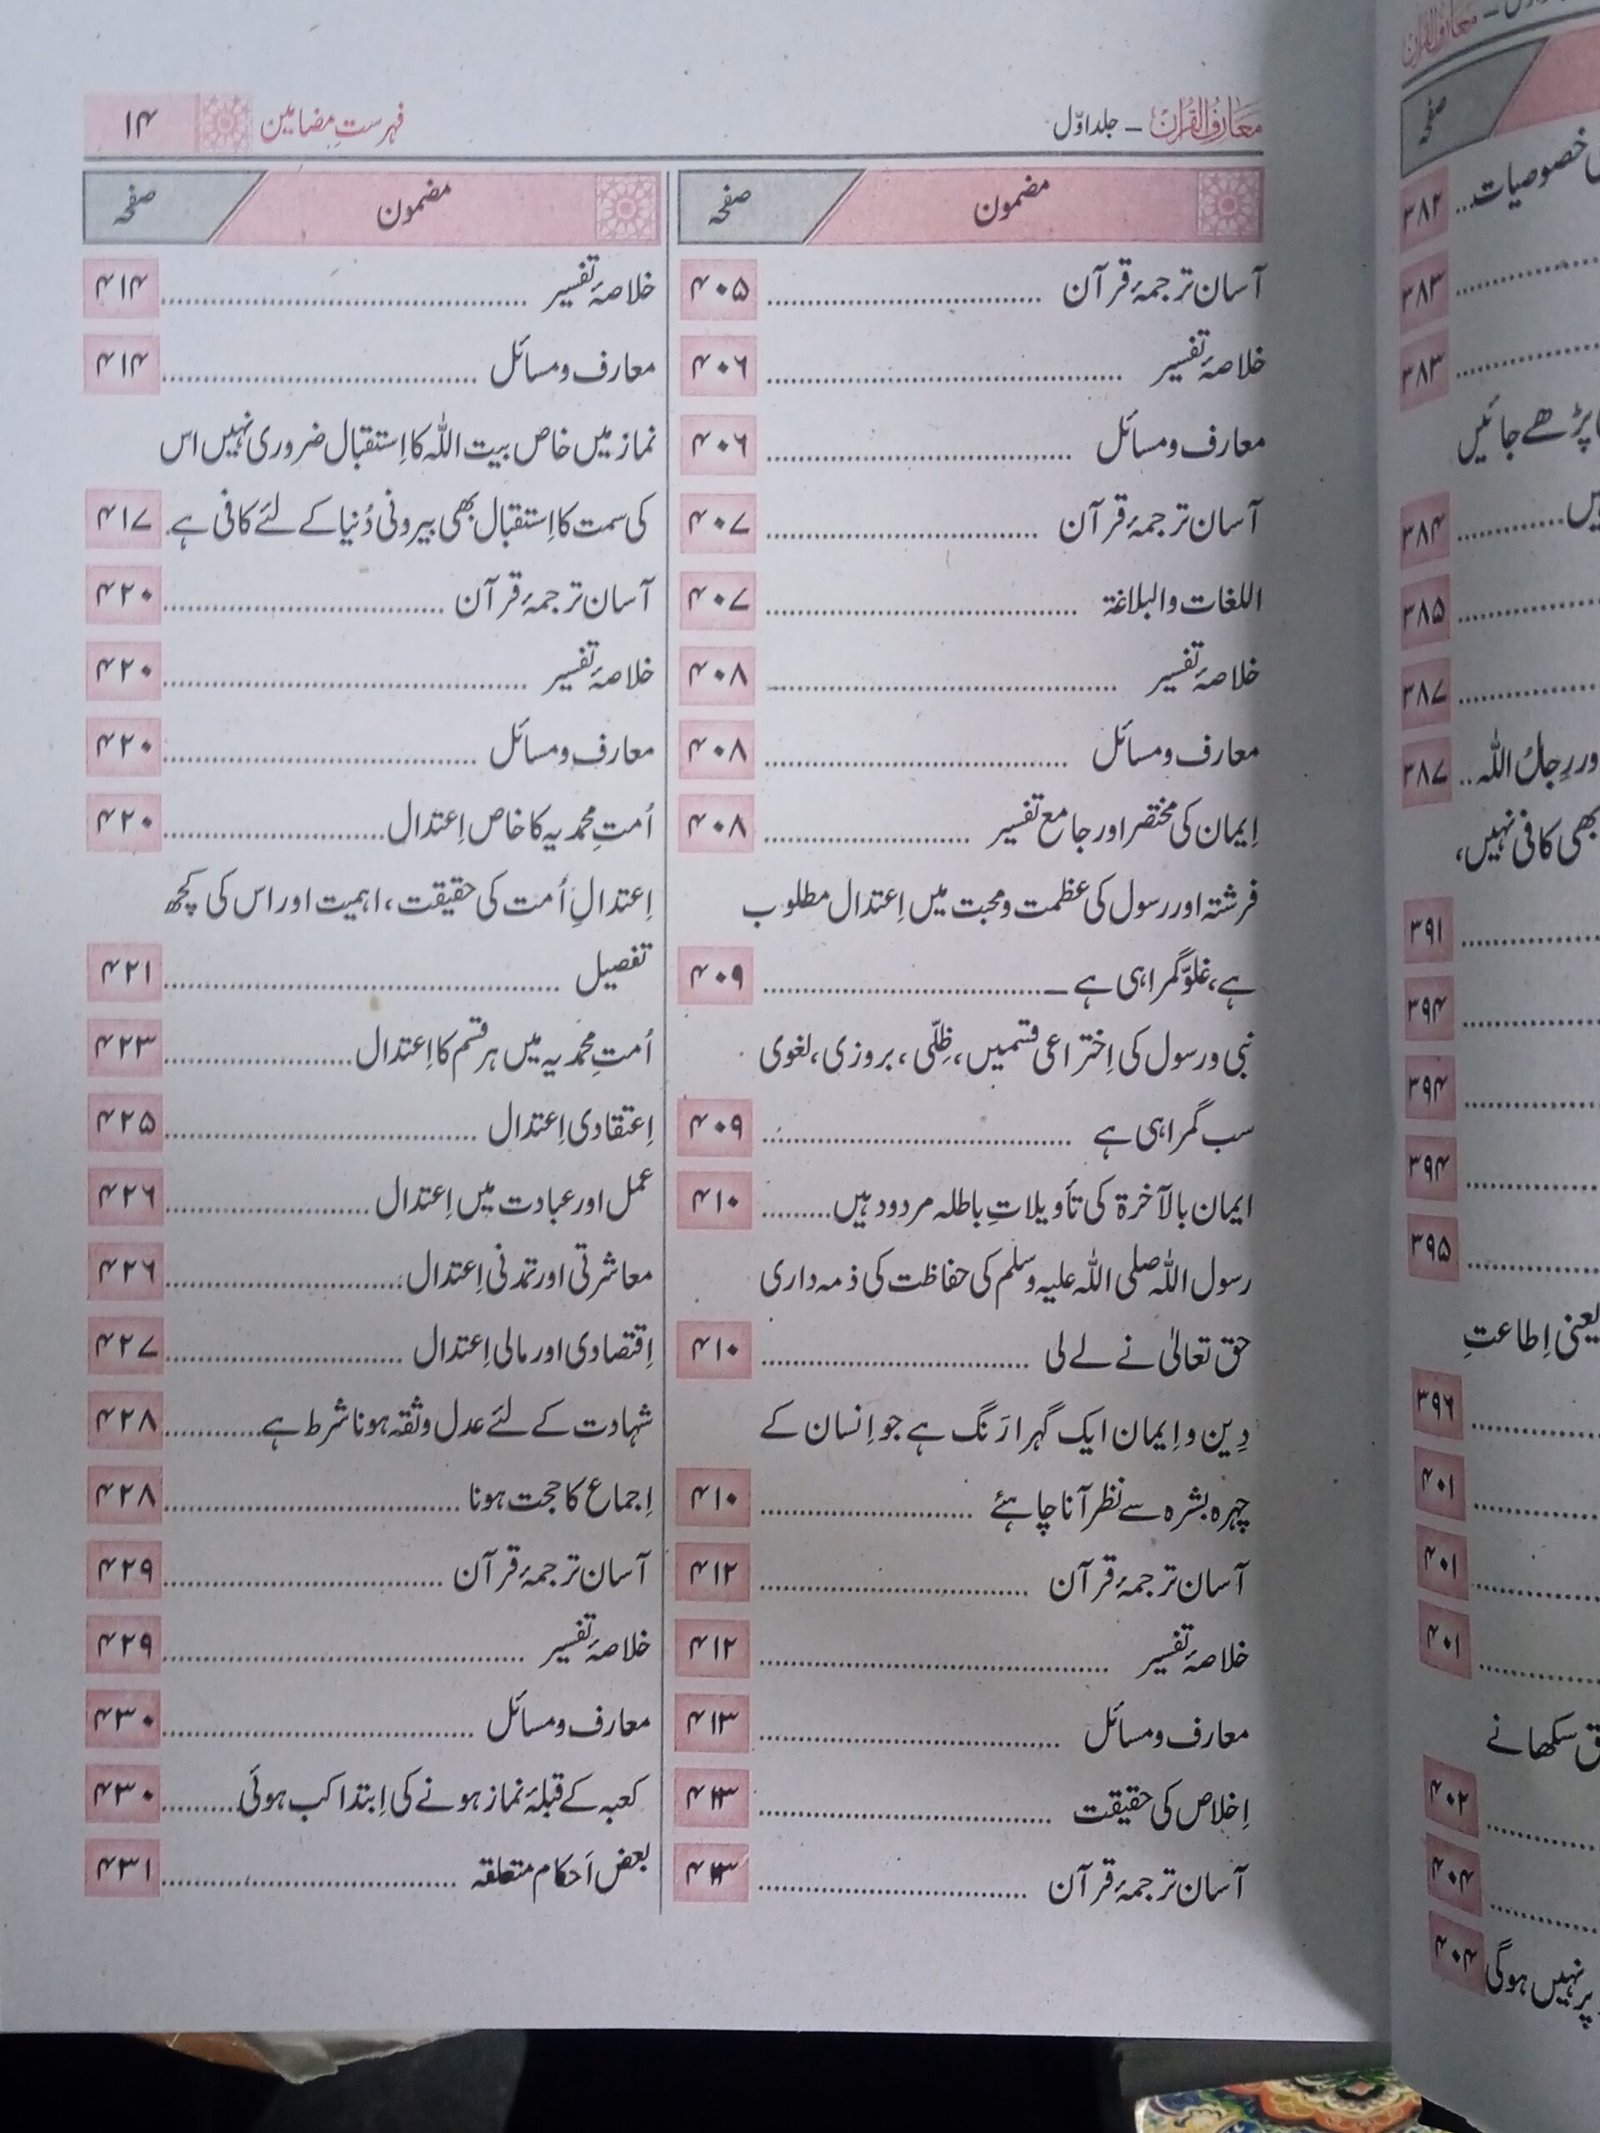 معارف القرآن – جلد اوّل
فہرستِ مضامین
۱۴
مضمون صفحہ
آسان ترجمۂ قرآن ........ ۴۰۵
خلاصۂ تفسیر ........ ۴۰۶
معارف و مسائل ........ ۴۰۶
آسان ترجمۂ قرآن ........ ۴۰۷
اللغات والبلاغة ........ ۴۰۷
خلاصۂ تفسیر ........ ۴۰۸
معارف و مسائل ........ ۴۰۸
اِیمان کی مختصر اور جامع تفسیر ........ ۴۰۸
فرشتہ اور رسول کی عظمت و محبت میں اِعتدال مطلوب
ہے، غلوّ گمراہی ہے – ........ ۴۰۹
نبی و رسول کی اِختراعی قسمیں، ظِلّی، بروزی، لغوی
سب گمراہی ہے ........ ۴۰۹
ایمان بالآخرۃ کی تأویلاتِ باطلہ مردود ہیں ........ ۴۱۰
رسول اللہ صلی اللہ علیہ وسلم کی حفاظت کی ذمہ داری
حق تعالیٰ نے لے لی ........ ۴۱۰
دِین و اِیمان ایک گہرا رَنگ ہے جو اِنسان کے
چہرہ بشرہ سے نظر آنا چاہئے ........ ۴۱۰
آسان ترجمۂ قرآن ........ ۴۱۲
خلاصۂ تفسیر ........ ۴۱۲
معارف و مسائل ........ ۴۱۳
اِخلاص کی حقیقت ........ ۴۱۳
آسان ترجمۂ قرآن ........ ۴۱۳
مضمون صفحہ
خلاصۂ تفسیر ........ ۴۱۴
معارف و مسائل ........ ۴۱۴
نماز میں خاص بیت اللہ کا اِستقبال ضروری نہیں اس
کی سمت کا اِستقبال بھی بیرونی دُنیا کے لئے کافی ہے ۴۱۷
آسان ترجمۂ قرآن ........ ۴۲۰
خلاصۂ تفسیر ........ ۴۲۰
معارف و مسائل ........ ۴۲۰
اُمتِ محمدیہ کا خاص اِعتدال ........ ۴۲۰
اِعتدالِ اُمت کی حقیقت، اہمیت اور اس کی کچھ
تفصیل ........ ۴۲۱
اُمتِ محمدیہ میں ہر قسم کا اِعتدال ........ ۴۲۳
اِعتقادی اِعتدال ........ ۴۲۵
عمل اور عبادت میں اِعتدال ........ ۴۲۶
معاشرتی اور تمدنی اِعتدال ........ ۴۲۶
اِقتصادی اور مالی اِعتدال ........ ۴۲۷
شہادت کے لئے عدل و ثقہ ہونا شرط ہے ........ ۴۲۸
اِجماع کا حجت ہونا ........ ۴۲۸
آسان ترجمۂ قرآن ........ ۴۲۹
خلاصۂ تفسیر ........ ۴۲۹
معارف و مسائل ........ ۴۳۰
کعبہ کے قبلۂ نماز ہونے کی اِبتدا کب ہوئی ........ ۴۳۰
بعض اَحکام متعلقہ ........ ۴۳۱
صفحہ
خصوصیات ... ۳۸۲
........ ۳۸۳
........ ۳۸۳
پڑھے جائیں
........ ۳۸۴
........ ۳۸۵
........ ۳۸۷
رِجالُ اللہ .. ۳۸۷
بھی کافی نہیں،
........ ۳۹۱
........ ۳۹۴
........ ۳۹۴
........ ۳۹۴
........ ۳۹۵
یعنی اِطاعتِ
........ ۳۹۶
........ ۴۰۱
........ ۴۰۱
........ ۴۰۱
سکھانے
........ ۴۰۲
........ ۴۰۴
پر نہیں ہوگی ۴۰۴